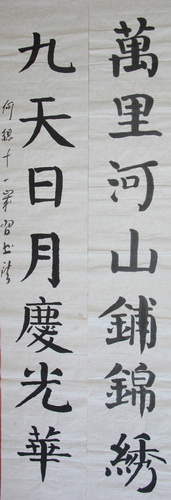 萬里河山鋪錦綉
九天日月慶光華
何聰十一歲習書